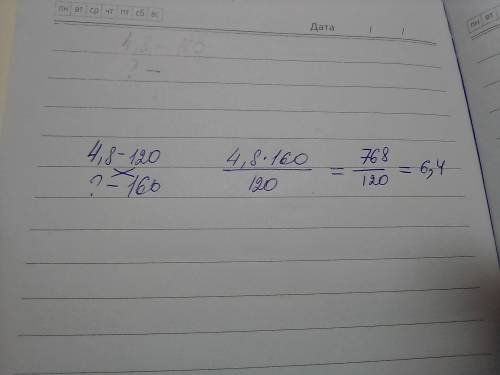 пн вт ср чт пт сб вс
Дата / /
4,8 - 120
? - 160
4,8·160 / 120 = 768 / 120 = 6,4